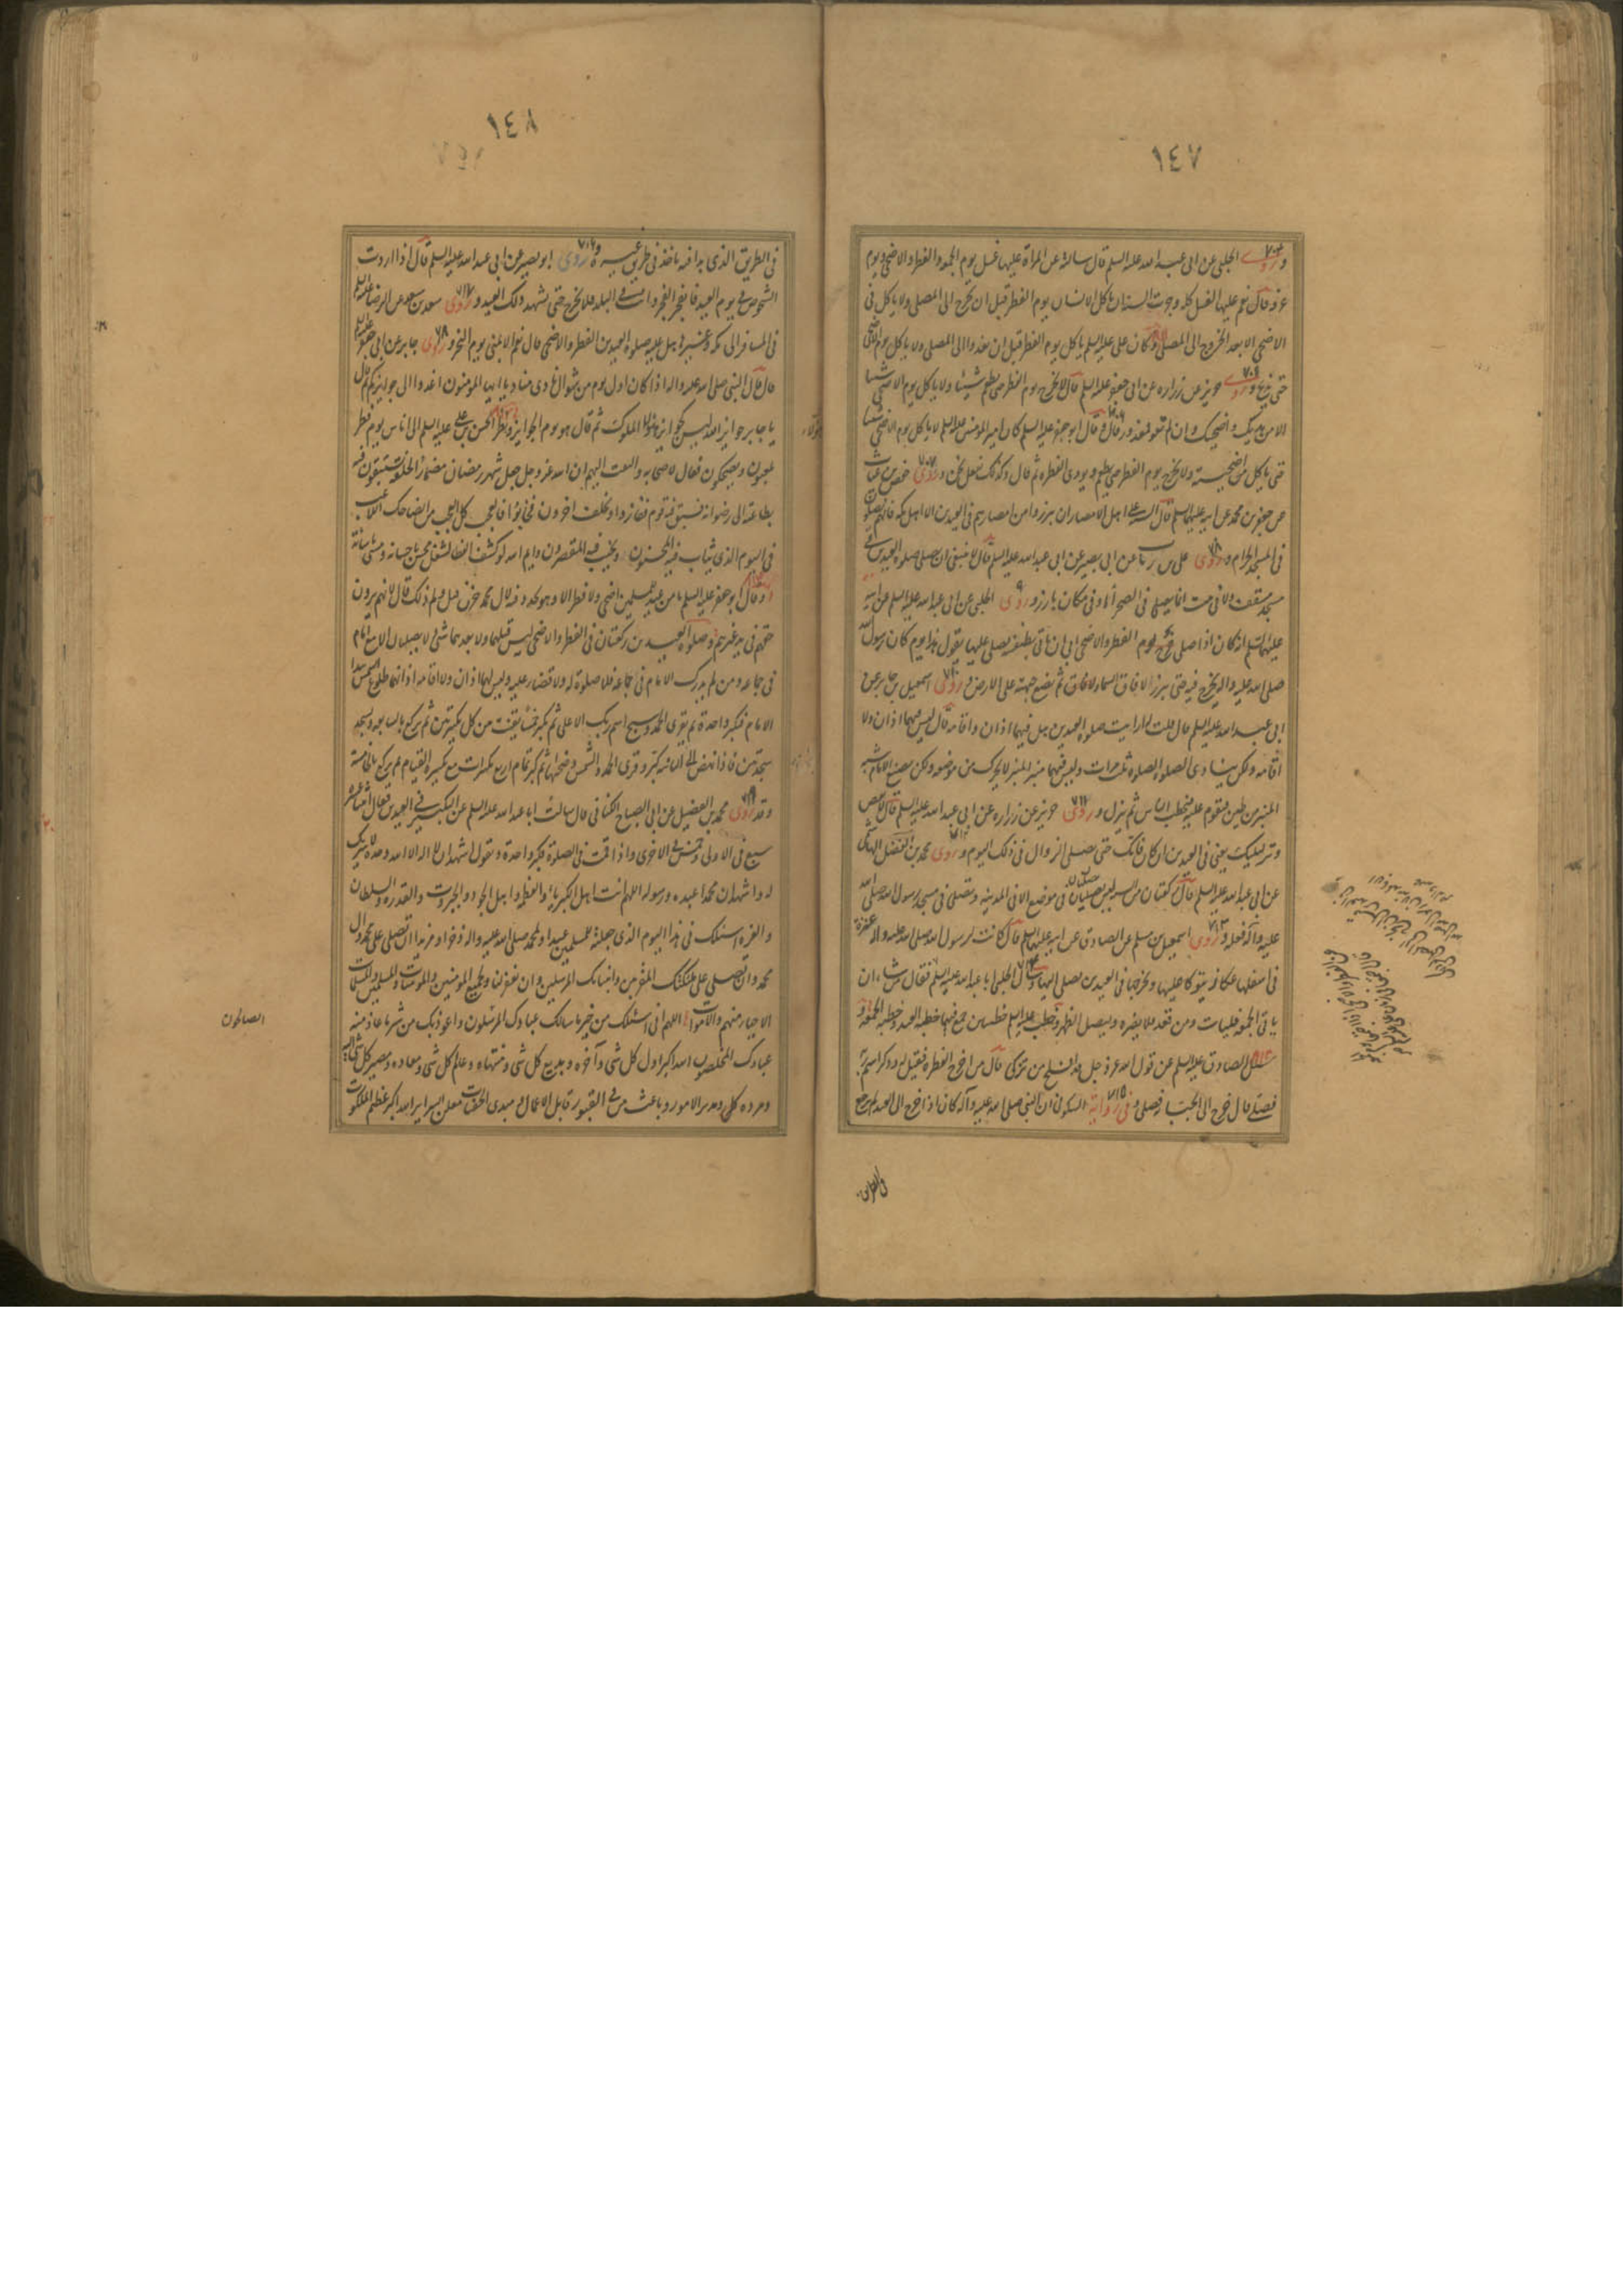 ١٤٧
وروى الحلبي عن ابى عبد الله عليه السلم قال سالته عن المراة عليها غسل يوم الجمعة والفطر والاضحى ويوم
عرفة قال نعم عليها الغسل كله وجرت السنة ان ياكل الانسان يوم الفطر قبل ان يخرج الى المصلى ولا ياكل فى
الاضحى الا بعد الخروج الى المصلى وكان على عليه السلم ياكل يوم الفطر قبل ان يغدو الى المصلى ولا ياكل يوم الاضحى
حتى يذبح وروى حريز عن زرارة عن ابى جعفر عليه السلم قال لا تخرج يوم الفطر حتى تطعم شيئا ولا تاكل يوم الاضحى شيئا
الا من هديك واضحيتك وان لم تقو فمعذور قال وقال ابو جعفر عليه السلم كان امير المومنين عليه السلم لا ياكل يوم الاضحى شيئا
حتى ياكل من اضحيته ولا يخرج يوم الفطر حتى يطعم ويودى الفطرة ثم قال وكذلك نفعل نحن وروى حفص بن غياث
عن جعفر بن محمد عن ابيه عليهما السلم قال السنة على اهل الامصار ان يبرزوا من امصارهم فى العيدين الا اهل مكة فانهم يصلون
فى المسجد الحرام وروى على بن رئاب عن ابى بصير عن ابى عبد الله عليه السلم قال لا ينبغى ان تصلى صلوة العيدين فى
مسجد مسقف ولا فى بيت انما يصلى فى الصحراء او فى مكان بارز وروى الحلبي عن ابى عبد الله عليه السلم عن ابيه
عليهما السلم انه كان اذا خرج يوم الفطر والاضحى ابى ان ياتى بطنفسة يصلى عليها يقول هذا يوم كان رسول الله
صلى الله عليه واله يخرج فيه حتى يبرز لافاق السماء ثم يضع جبهته على الارض وروى اسمعيل بن جابر عن
ابى عبد الله عليه السلم قال قلت له ارايت صلوة العيدين هل فيهما اذان واقامة قال ليس فيهما اذان ولا
اقامة ولكن ينادى الصلوة الصلوة ثلث مرات وليس فيهما منبر المنبر لا يحرك من موضعه ولكن يصنع للامام شبه
المنبر من طين فيقوم عليه فيخطب الناس ثم ينزل وروى حريز عن زرارة عن ابى عبد الله عليه السلم قال لا تقض
وتر ليلتك يعنى فى العيدين ان كان فاتك حتى تصلى الزوال فى ذلك اليوم وروى محمد بن الفضل الهاشمى
عن ابى عبد الله عليه السلم قال ركعتان من السنة ليس تصليان فى موضع الا فى المدينة وتصلى فى مسجد رسول الله صلى الله
عليه وآله فعله وروى اسمعيل بن مسلم عن الصادق عن ابيه عليهما السلم قال كانت لرسول الله صلى الله عليه واله عنزة
فى اسفلها عكاز يتوكا عليها ويخرجها فى العيدين يصلى اليها وسال الحلبي ابا عبد الله عليه السلم فقال من شاء ان
ياتى الجمعة فليات ومن قعد فلا يضره وليصل الظهر وخطب عليه السلم خطبتين جمع فيهما خطبة العيد وخطبة الجمعة
وسئل الصادق عليه السلم عن قول الله عز وجل قد افلح من تزكى قال من اخرج الفطرة فقيل له وذكر اسم ربه
فصلى قال خرج الى الجبانة فصلى وفى رواية السكونى ان النبى صلى الله عليه وآله كان اذا خرج الى العيد لم يرجع
فى الطريق
١٤٨
فى الطريق الذى بدا فيه ياخذ فى طريق غيره وروى ابو بصير عن ابى عبد الله عليه السلم قال اذا اردت
الشخوص فى يوم العيد فانفجر الفجر وانت فى البلد فلا تخرج حتى تشهد ذلك العيد وروى سعد بن سعد عن الرضا عليه السلم
فى المسافر الى مكة وغيرها هل عليه صلوة العيدين الفطر والاضحى قال نعم الا بمنى يوم النحر وروى جابر عن ابى جعفر عليه السلم
قال قال النبى صلى الله عليه واله اذا كان اول يوم من شوال نادى مناد يا ايها المومنون اغدوا الى جوايزكم ثم قال
يا جابر جوايز الله ليس كجوايز هؤلاء الملوك ثم قال هو يوم الجوايز ونظر الحسن بن على عليه السلم الى اناس يوم فطر
يلعبون ويضحكون فقال لاصحابه والتفت اليهم ان الله عز وجل جعل شهر رمضان مضمارا لخلقه يستبقون فيه
بطاعته الى رضوانه فسبق فيه قوم ففازوا وتخلف اخرون فخابوا فالعجب كل العجب من الضاحك اللاعب
فى اليوم الذى يثاب فيه المحسنون ويخيب فيه المقصرون وايم الله لو كشف الغطا لشغل محسن باحسانه ومسئ باساءته
وقال ابو جعفر عليه السلم ما من عيد للمسلمين اضحى ولا فطر الا وهو يجدد فيه لال محمد حزن قيل ولم ذلك قال لانهم يرون
حقهم فى يد غيرهم وصلوة العيدين ركعتان فى الفطر والاضحى ليس قبلهما ولا بعدهما شئ ولا يصليان الا مع امام
فى جماعة ومن لم يدرك الامام فى جماعة فلا صلوة له ولا قضاء عليه وليس لهما اذان ولا اقامة اذانهما طلوع الشمس يبدا
الامام فيكبر واحدة ثم يقرى الحمد وسبح اسم ربك الاعلى ثم يكبر خمسا يقنت بين كل تكبيرتين ثم يركع بالسابعة ويسجد
سجدتين فاذا نهض الى الثانية كبر وقرى الحمد والشمس وضحيها ثم كبر تمام اربع تكبيرات مع تكبيرة القيام ثم يركع بالخامسة
وقد روى محمد بن الفضيل عن ابى الصباح الكنانى قال سالت ابا عبد الله عليه السلم عن التكبير فى العيدين فقال اثنتا عشرة
سبع فى الاولى وخمس فى الاخرى واذا قمت فى الصلوة فكبر واحدة وتقول اشهد ان لا اله الا الله وحده لا شريك
له واشهد ان محمدا عبده ورسوله اللهم انت اهل الكبرياء والعظمة واهل الجود والجبروت والقدرة والسلطان
والعزة اسئلك فى هذا اليوم الذى جعلته للمسلمين عيدا ولمحمد صلى الله عليه واله ذخرا ومزيدا ان تصلى على محمد وال
محمد وان تصلى على ملئكتك المقربين وانبيائك المرسلين وان تغفر لنا ولجميع المومنين والمومنات والمسلمين والمسلمات
الاحياء منهم والاموات اللهم انى اسئلك من خير ما سالك عبادك المرسلون واعوذ بك من شر ما عاذ منه
عبادك المخلصون الله اكبر اول كل شئ وآخره وبديع كل شئ ومنتهاه وعالم كل شئ ومعاده ومصير كل شئ اليه
ومرده كل ومدبر الامور وباعث من فى القبور قابل الاعمال مبدى الخفيات معلن السراير الله اكبر عظيم الملكوت
الصالحون